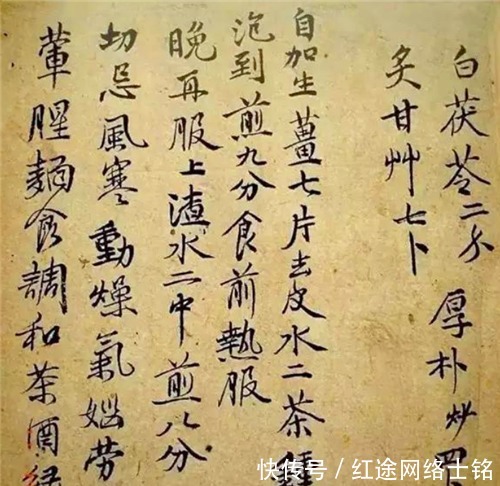 白茯苓二分 厚朴炒
炙甘艸七卜
自加生薑七片去皮水二茶
泡到煎九分食前熱服
晚再服上渣水二中煎八分
切忌風寒動燥氣惱劳
葷腥麵食調和茶酒
快传号 / 红途网络士铭